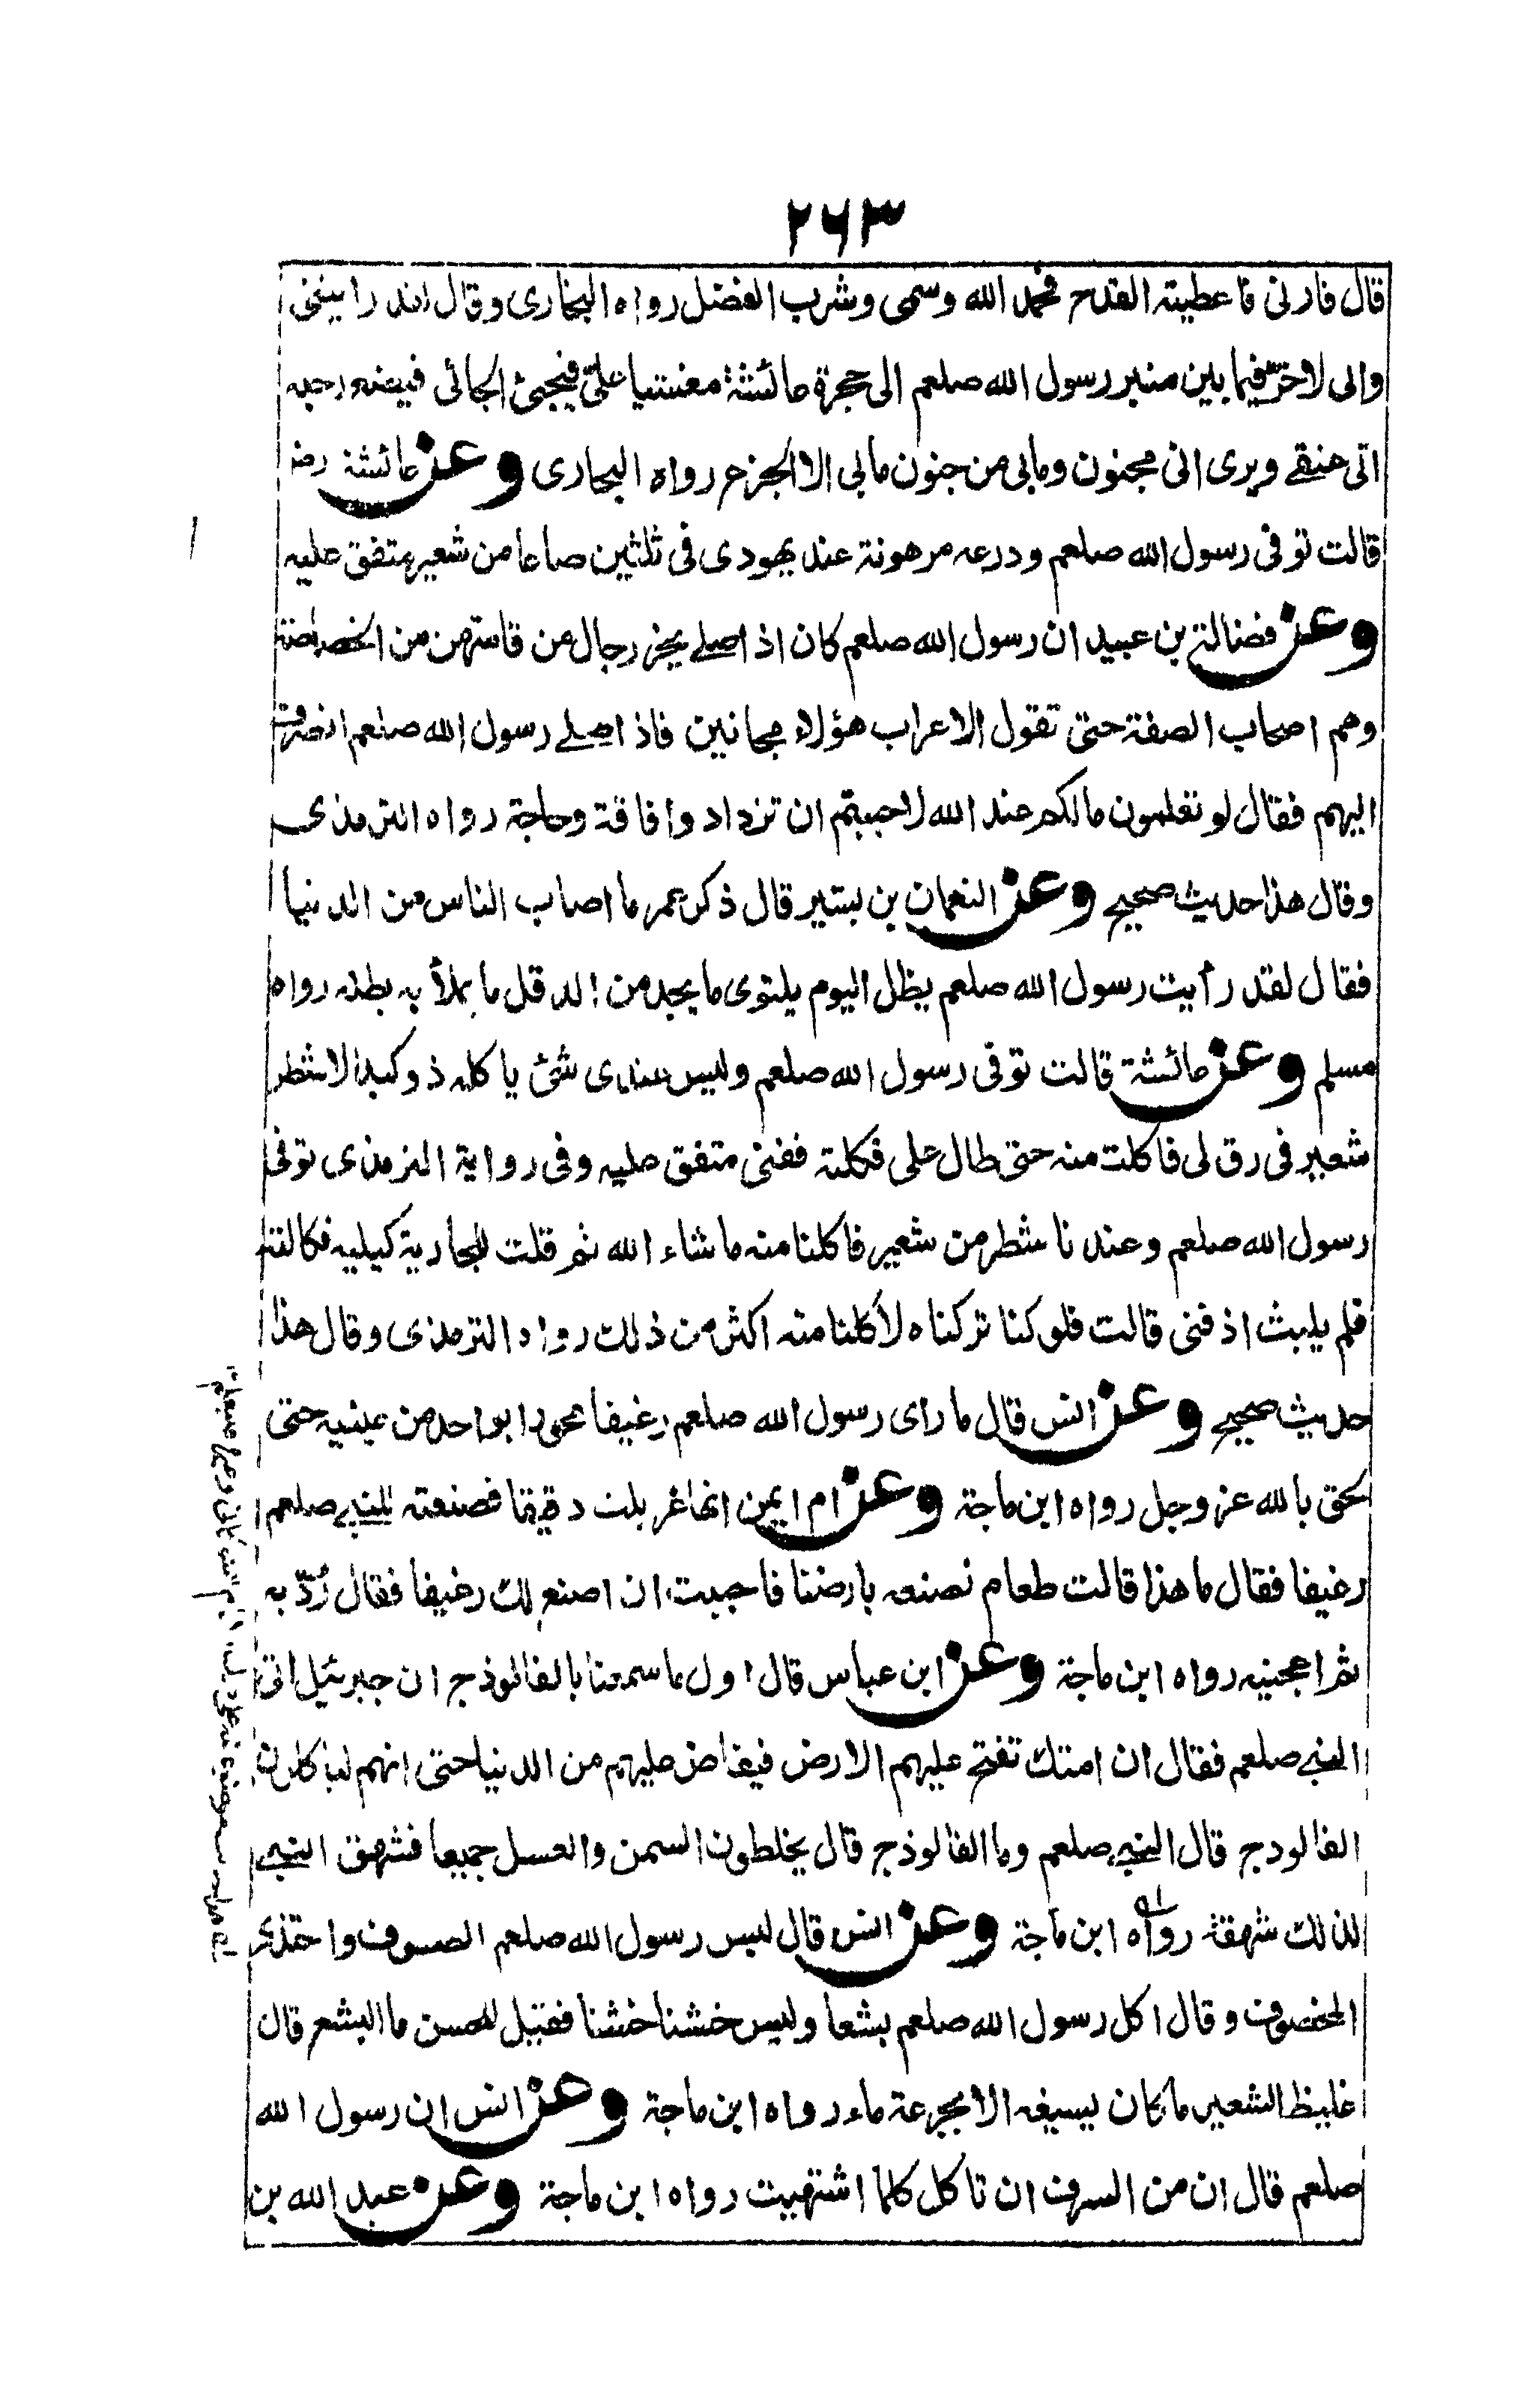 ٢٦٣
قال فارنی فاعطیته القدح فحمد الله وسمی وشرب الفضل رواه البخاری وقال لقد رایتنی
وانی لاخرّ فیما بین منبر رسول الله صلعم الی حجرة عائشة مغشیا علیّ فیجیٔ الجائی فیضع رجله
علی عنقے ویری انی مجنون ومابی من جنون مابی الا الجوع رواه البخاری وعن عائشة رضـ
قالت توفی رسول الله صلعم ودرعه مرهونة عند یهودی فی ثلثین صاعا من شعیر متفق علیه
وعن فضالة بن عبید ان رسول الله صلعم کان اذا صلے یخر رجال من قامتهم من الخصاصة
وهم اصحاب الصفة حتی تقول الاعراب هؤلاء مجانین فاذا صلے رسول الله صلعم انصرف
الیهم فقال لو تعلمون مالکم عند الله لاحببتم ان تزدادوا فاقة وحاجة رواه الترمذی
وقال هذا حدیث صحیح وعن النعمان بن بشیر قال ذکر عمر ما اصاب الناس من الدنیا
فقال لقد رأیت رسول الله صلعم یظل الیوم یلتوی ما یجد من الدقل ما یملأ به بطنه رواه
مسلم وعن عائشة قالت توفی رسول الله صلعم ولیس عندی شئ یا کله ذوکبد الا شطر
شعیر فی رق لی فاکلت منه حتی طال علی فکلته ففنی متفق علیه وفی روایة الترمذی توفی
رسول الله صلعم وعندنا شطر من شعیر فاکلنا منه ما شاء الله ثم قلت للجاریة کیلیه فکالته
فلم یلبث اذ فنی قالت فلو کنا ترکناه لأکلنا منه اکثر من ذلک رواه الترمذی وقال هذا
حدیث صحیح وعن انس قال ما رای رسول الله صلعم رغیفا محورا بواحد من عینیه حتی
لحق بالله عز وجل رواه ابن ماجة وعن ام ایمن انها غربلت دقیقا فصنعته للنبے صلعم
رغیفا فقال ما هذا قالت طعام نصنعه بارضنا فاحببت ان اصنع لک رغیفا فقال رُدّ به
ثم اعجنیه رواه ابن ماجة وعن ابن عباس قال اول ما سمعنا بالفالوذج ان جبرئیل اتی
النبے صلعم فقال ان امتک تفتح علیهم الارض فیفاض علیهم من الدنیا حتی انهم لیاکلون
الفالودج قال النبے صلعم وما الفالوذج قال یخلطون السمن والعسل جمیعا فشهق النبے
لذلک شهقة رواه ابن ماجة وعن انس قال لبس رسول الله صلعم الصوف واحتذی
المخصوف وقال اکل رسول الله صلعم بشعا ولبس خشنا خشنا فقیل للحسن ما البشع قال
غلیظ الشعیر ما کان یسیغه الا بجرعة ماء رواه ابن ماجة وعن انس ان رسول الله
صلعم قال ان من السرف ان تاکل کلما اشتهیت رواه ابن ماجة وعن عبد الله بن